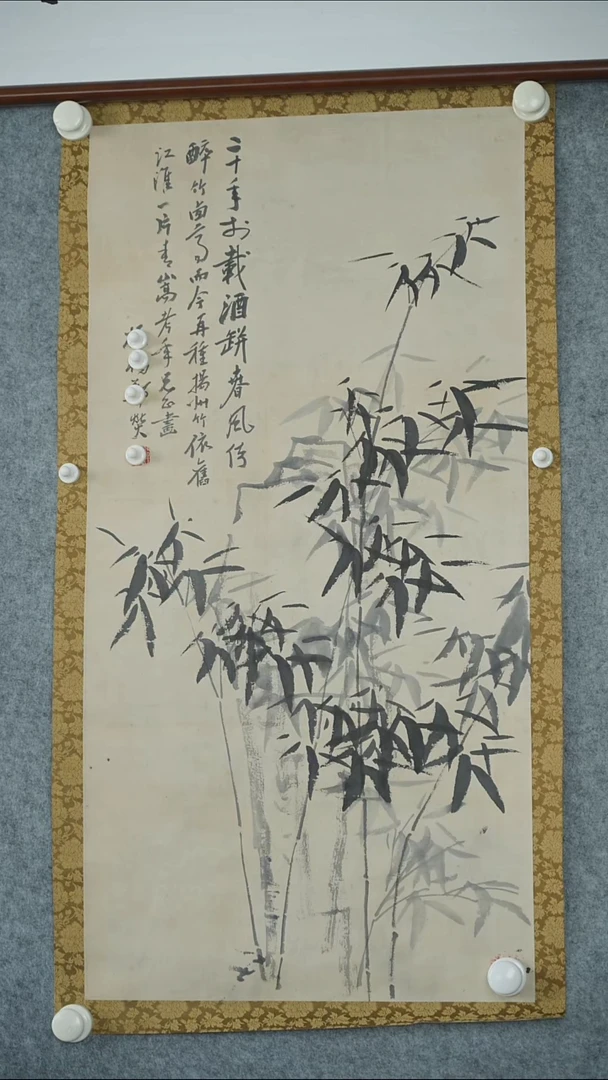 二十年前載酒缾春風倚
醉竹西亭而今再種揚州竹依舊
江淮一片青嵩老年兄正畫
燮